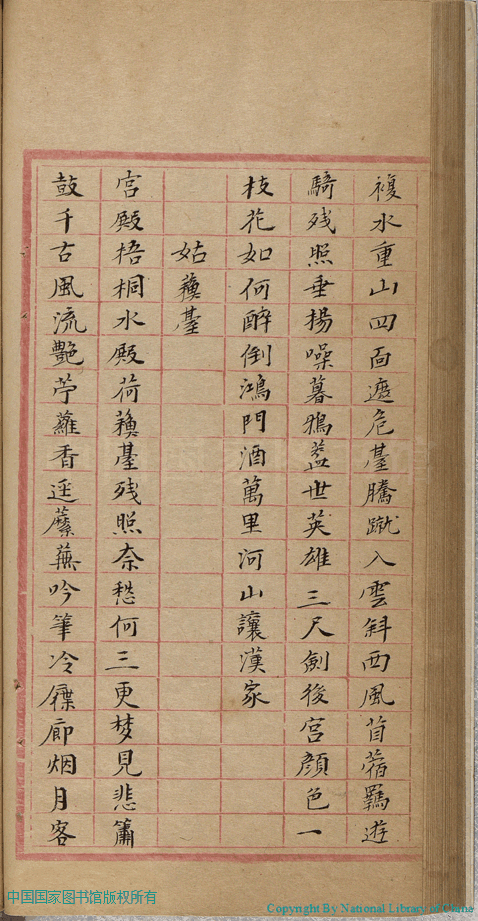 複水重山四面遮危臺騰蹴入雲斜西風苜蓿羈遊
騎残照垂楊噪暮鴉葢世英雄三尺劍後宮顔色一
枝花如何醉倒鴻門酒萬里河山讓漢家
姑蘓臺
宮殿梧桐水殿荷蘓臺残照奈愁何三更梦見悲簫
鼓千古風流艷苧蘿香逕蘼蕪吟筆冷屧廊烟月客
中国国家图书馆版权所有
Copyright By National Library of China